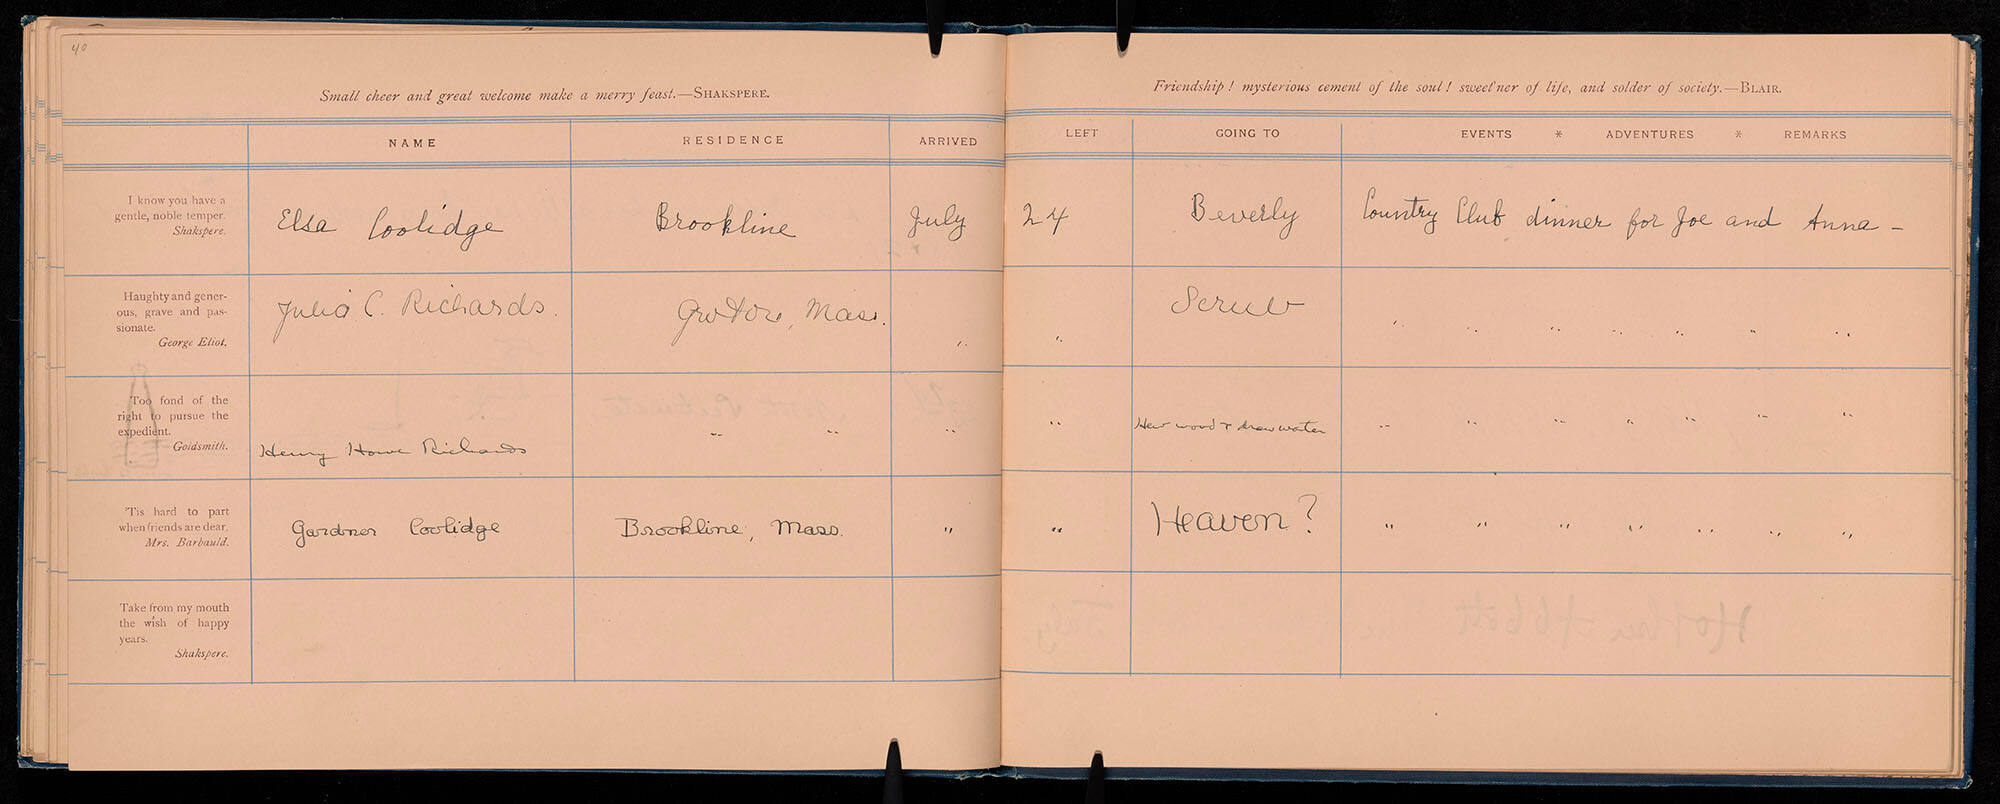 40
Small cheer and great welcome make a merry feast.—SHAKSPERE.
Friendship! mysterious cement of the soul! sweet'ner of life, and solder of society.—BLAIR.
NAME RESIDENCE ARRIVED LEFT GOING TO EVENTS * ADVENTURES * REMARKS
I know you have a
gentle, noble temper.
Shakspere.
Elsa Coolidge Brookline July 24 Beverly Country Club dinner for Joe and Anna –
Haughty and gener-
ous, grave and pas-
sionate.
George Eliot.
Julia C. Richards. Groton, Mass. " " Scrub " " " " " " "
Too fond of the
right to pursue the
expedient.
Goldsmith.
Henry Howe Richards " " " " Hew wood & draw water " " " " " " "
'Tis hard to part
when friends are dear.
Mrs. Barbauld.
Gardner Coolidge Brookline, Mass. " " Heaven? " " " " " " "
Take from my mouth
the wish of happy
years.
Shakspere.